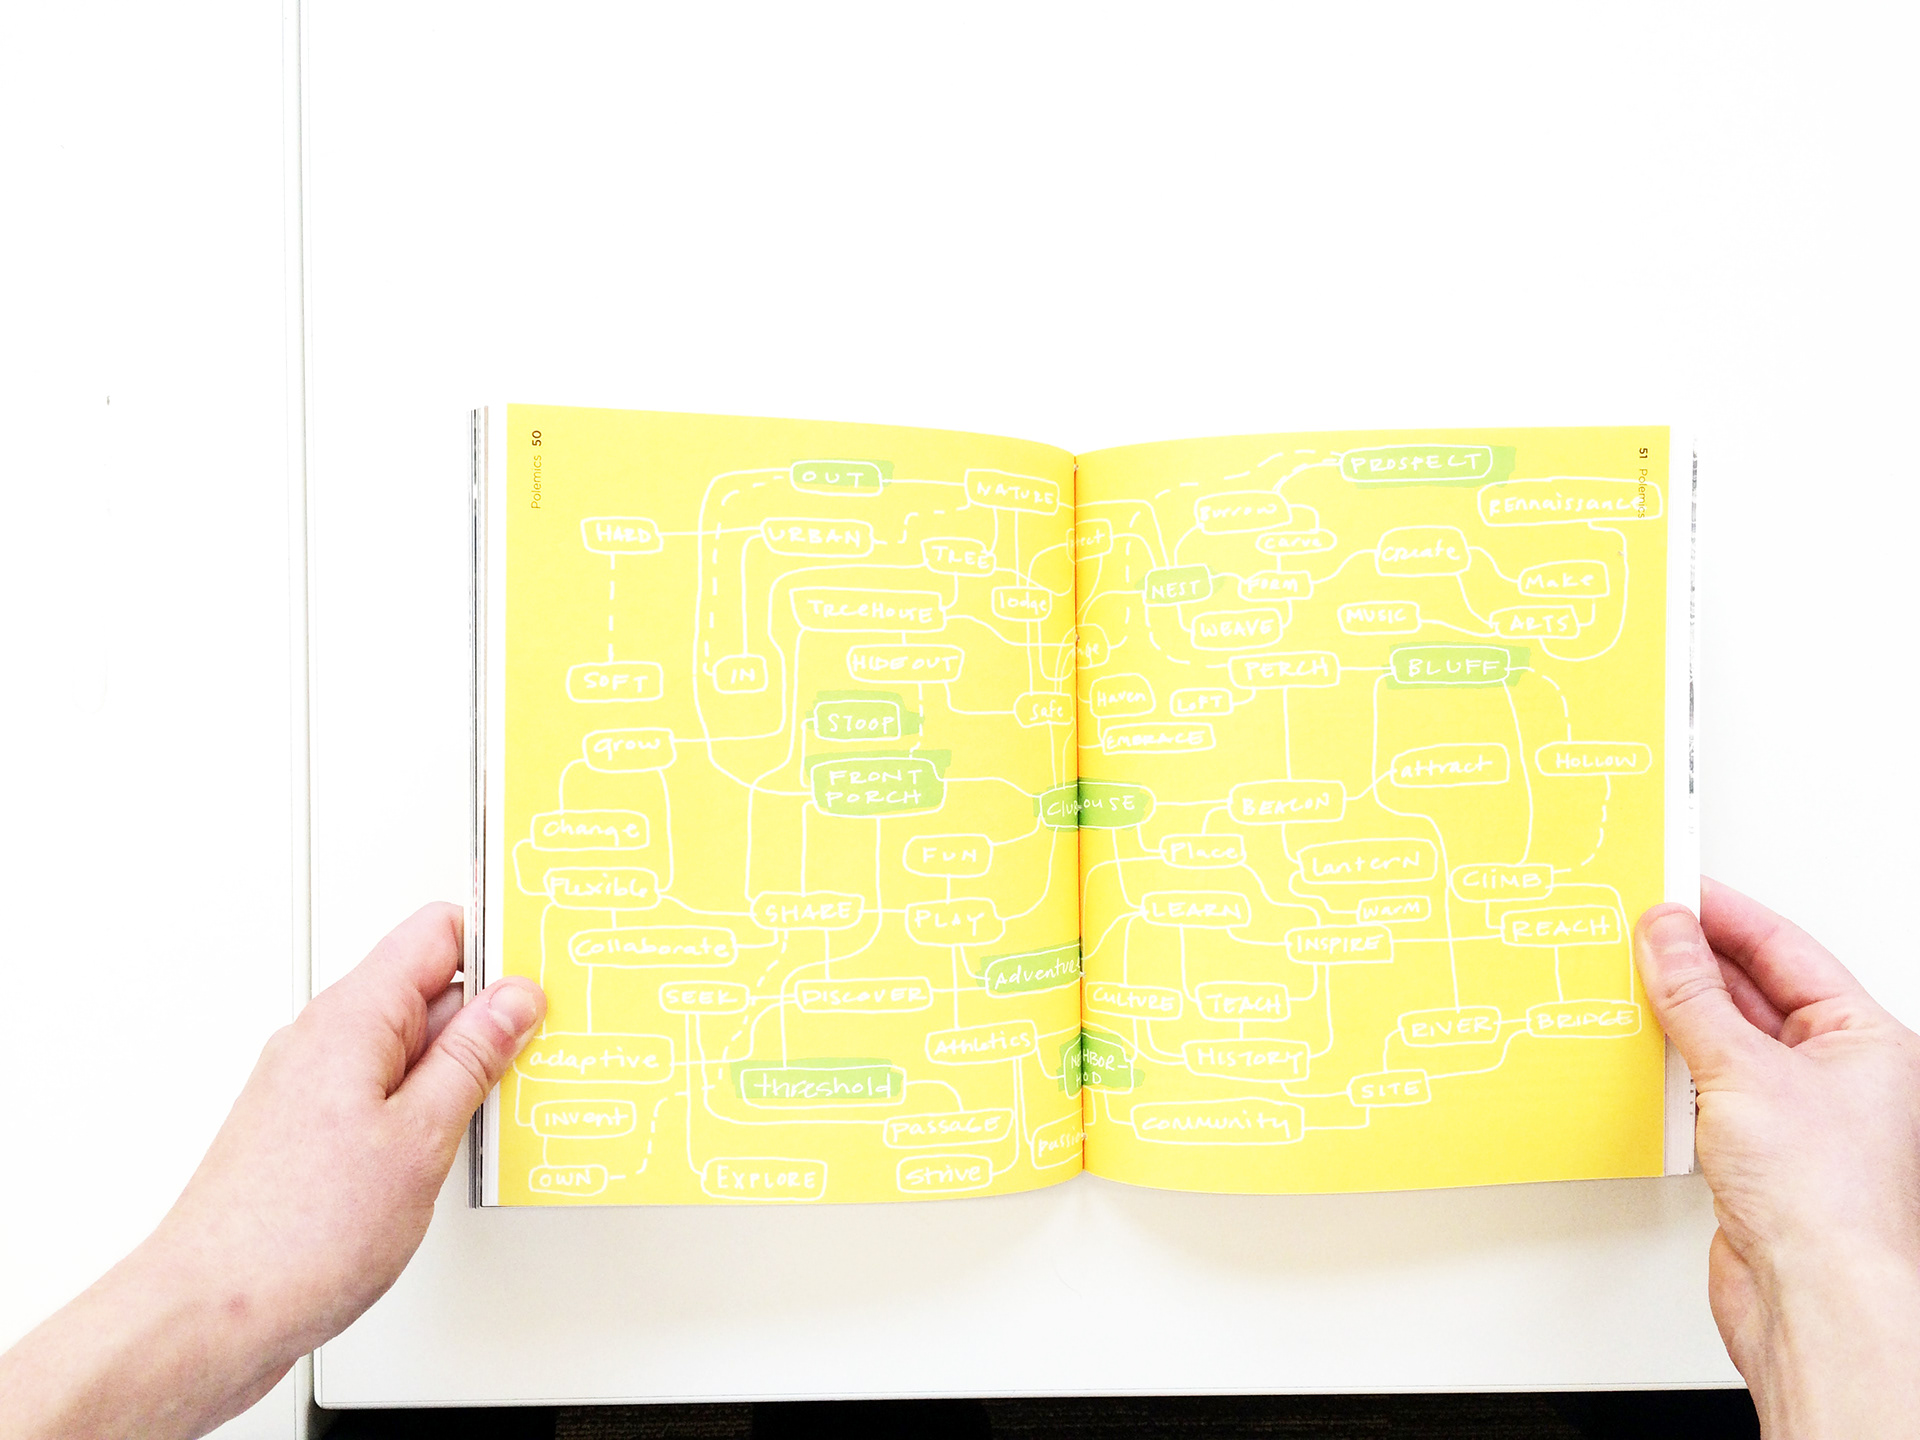 Polemics 50
OUT
NATURE
HARD
URBAN
TREE
TREEHOUSE
lodge
HIDEOUT
IN
SOFT
STOOP
Safe
grow
FRONT
PORCH
Change
FUN
Flexible
SHARE
PLAY
Collaborate
Adventure
SEEK
DISCOVER
Athletics
adaptive
threshold
INVENT
PASSAGE
OWN
EXPLORE
Strive
CLUBHOUSE
51 Polemics
PROSPECT
REnnaissance
Burrow
carve
Create
NEST
FORM
Make
MUSIC
ARTS
WEAVE
PERCH
BLUFF
Haven
LOFT
EMBRACE
HOLLOW
attract
BEACON
Place
Lantern
CLIMB
LEARN
warm
REACH
INSPIRE
CULTURE
TEACH
RIVER
BRIDGE
HISTORY
SITE
community